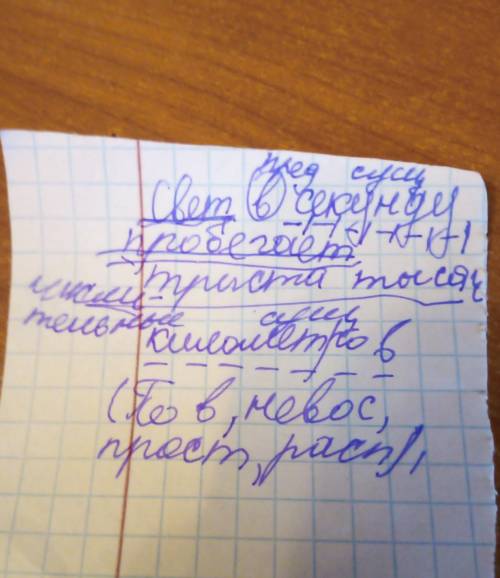 пред сущ
Свет в секунду
пробегает
триста тысяч
числи
тельные сущ
километров
(Пов, невос,
прост, расп),